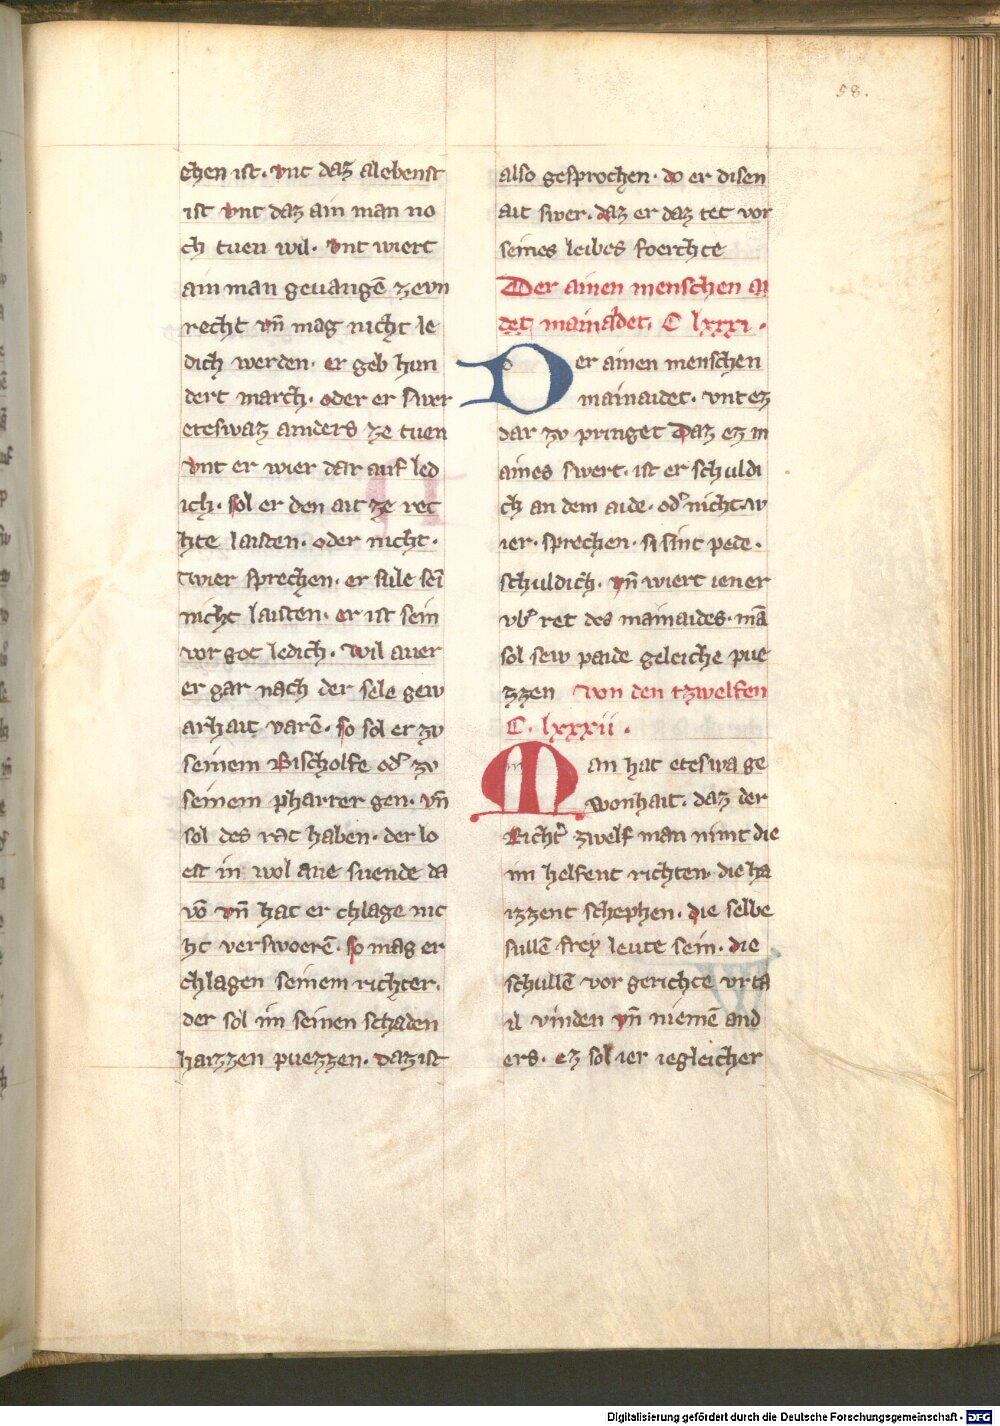 58.
chen ist. vnt daz alebenst
ist vnt daz ain man no
ch tuen wil. vnt wiert
ain man geuangē ze vn
recht vn̄ mag nicht le
dich werden. er geb hun
dert march. oder er swer
eteswaz anders ze tuen
vnt er wier dar auf led
ich. sol er den ait ze rec
hte laisten. oder nicht.
wier sprechen. er sule sei
nicht laisten. er ist sein
vor got ledich. wil auer
er gar nach der sele gew
arhait varē. so sol er zv
seinem Bischolfe od͛ zv
seinem pharrer gen. vn̄
sol des rat haben. der lo
est in wol aue suende da
vō vn̄ hat er chlage nic
ht verswoerē. so mag er
chlagen seinem richter.
der sol im seinen schaden
haizzen puezzen. daz ist
also gesprochen. do er disen
ait swer. daz er daz tet vor
seines leibes foerchte
Der ainen menschen ai
det mainaidet. C lxxxi.
Der ainen menschen
mainaidet. vnt ez
dar zv pringet Daz ez in
aines swert. ist er schuldi
ch an dem aide. od͛ nicht. w
ier. sprechen. si sint pede.
schuldich. vn̄ wiert iener
vb͛ ret des mainaides. mā
sol sew paide geleiche pue
zzen von den tzwelfen
C. lxxxii.
Man hat eteswa ge
wonhait. daz der
Richt͛ zwelf man nimt die
im helfent richten. die ha
izzent schephen. die selbe
sullē frey leute sein. die
schullē vor gerichte vrta
il vinden vn̄ niemē and
ers. ez sol ier iegleicher
Digitalisierung gefördert durch die Deutsche Forschungsgemeinschaft - DFG